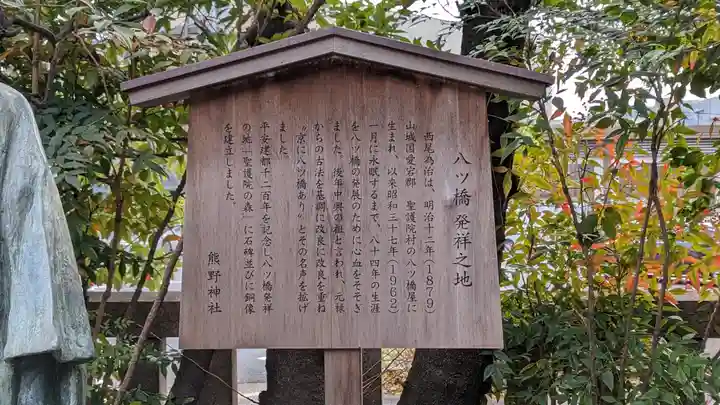 八ツ橋発祥之地
西尾為治は、明治十二年(1879)
山城国愛宕郡 聖護院村の八ツ橋屋に
生まれ、以来昭和三十七年(1962)
一月に永眠するまで、八十四年の生涯
を八ツ橋の発展のために心血をそそぎ
ました。後年中興の祖と言われ、元禄
からの古法を基調に改良に改良を重ね
“京に八ツ橋あり”とその名声を拡げ
ました。
平安建都千二百年を記念し八ツ橋発祥
の地「聖護院の森」に石碑並びに銅像
を建立しました。
熊野神社